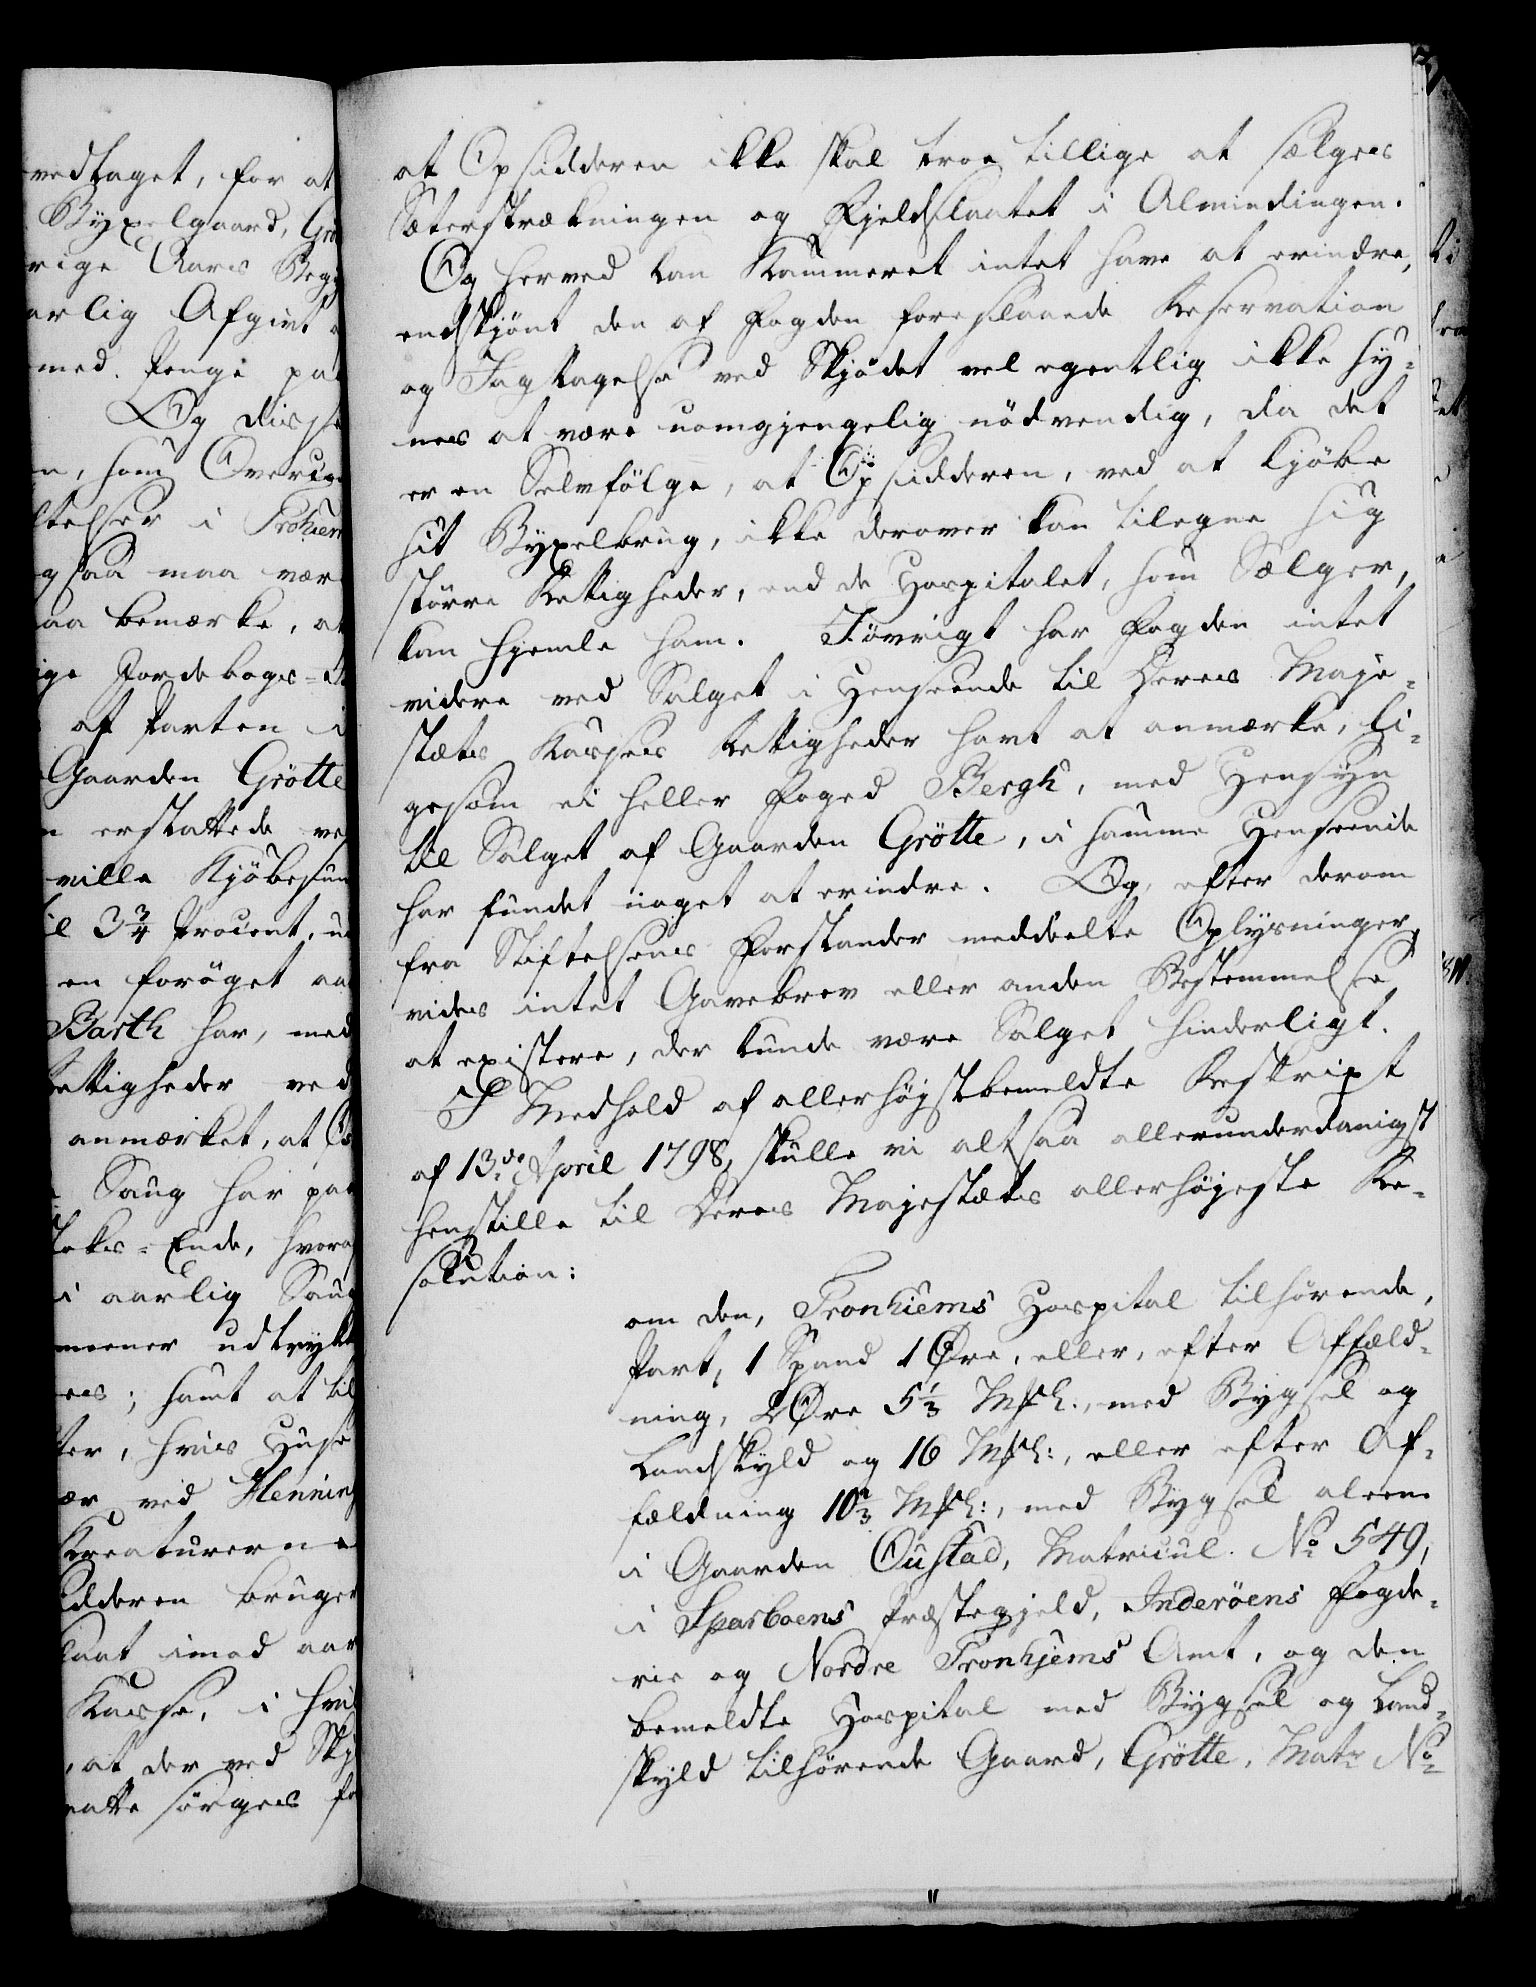 vedtaget, for at
Byxelgaard, Grø
rige Aars Beg
arlig Afgivt
med. Penge paa
Og disse
n, som Overig
ltelser i Trohiem
gsaa maa vær
aa bemærke, at
ige Jordebogs=
af Parten i
Gaarden Grötte
n erstattede ve
ville Kjöbesum
il 3 3/4 Procent, u
en forøget aa
Barth har, med
Rettigheder ved
anmærket, at O
Saug har paa
Ende, hvoraf
i aarlig Saug
meener udtrykk
es; samt at til
ter, hvis Huse
ær ved Henning
Kreaturerne
idderen bruger
laat imod aar
Kasse, i hvil
, at der ved Skj
maatte sørges fo
at Opsidderen ikke skal troe tillige at sælges
Sæterstrækningen og Fjeldslaatet i Almindingen.
Og herved kan Kammeret intet have at erindre,
endskjönt den af Fogden foreslaaede Reservation
og Iagttagelse ved Skjödet vel egentlig ikke sy=
nes at være uomgjengelig nödvendig, da det
er en Selvfölge, at Opsidderen, ved at kjöbe
sit Byxelbrug, ikke derover kan tilegne sig
större Rettigheder, end de Hospitalet, som Sælger,
kan hjemle ham. Iövrigt har Fogden intet
videre ved Salget i Henseende til Deres Maje=
stæts Kasses Rettigheder havt at anmærke, li=
gesom ei heller Foged Bergh, med Hensyn
til Salget af Gaarden Grötte, i samme Henseende
har fundet noget at erindre. Og, efter derom
fra Stiftelsens Forstander meddeelte Oplysninger,
vides intet Gavebrev eller anden Bestemmelse
at existere, der kunde være Salget hinderligt.
I Medhold af allerhöjstbemeldte Reskript
af 13de April 1798, skulle vi altsaa allerunderdanigst
henstille til Deres Majestæts allerhöjeste Re=
solution:
om den, Tronhiems Hospital tilhörende,
Part, 1 Spand 1 Øre, eller, efter Affæld=
ning, 2 Øre 5 1/3 Mrkl., med Bygsel og
Landskyld og 16 Mrkl:, eller efter Af=
fældning 10 2/3 Mrkl:, med Bygsel alene
i Gaarden Oustad, Matricul. No 549,
i Sparboens Præstegjeld, Inderöens Fogde=
rie og Nordre Tronhjems Amt, og den
bemeldte Hospital med Bygsel og Land=
skyld tilhörende Gaard, Grötte, Matr No